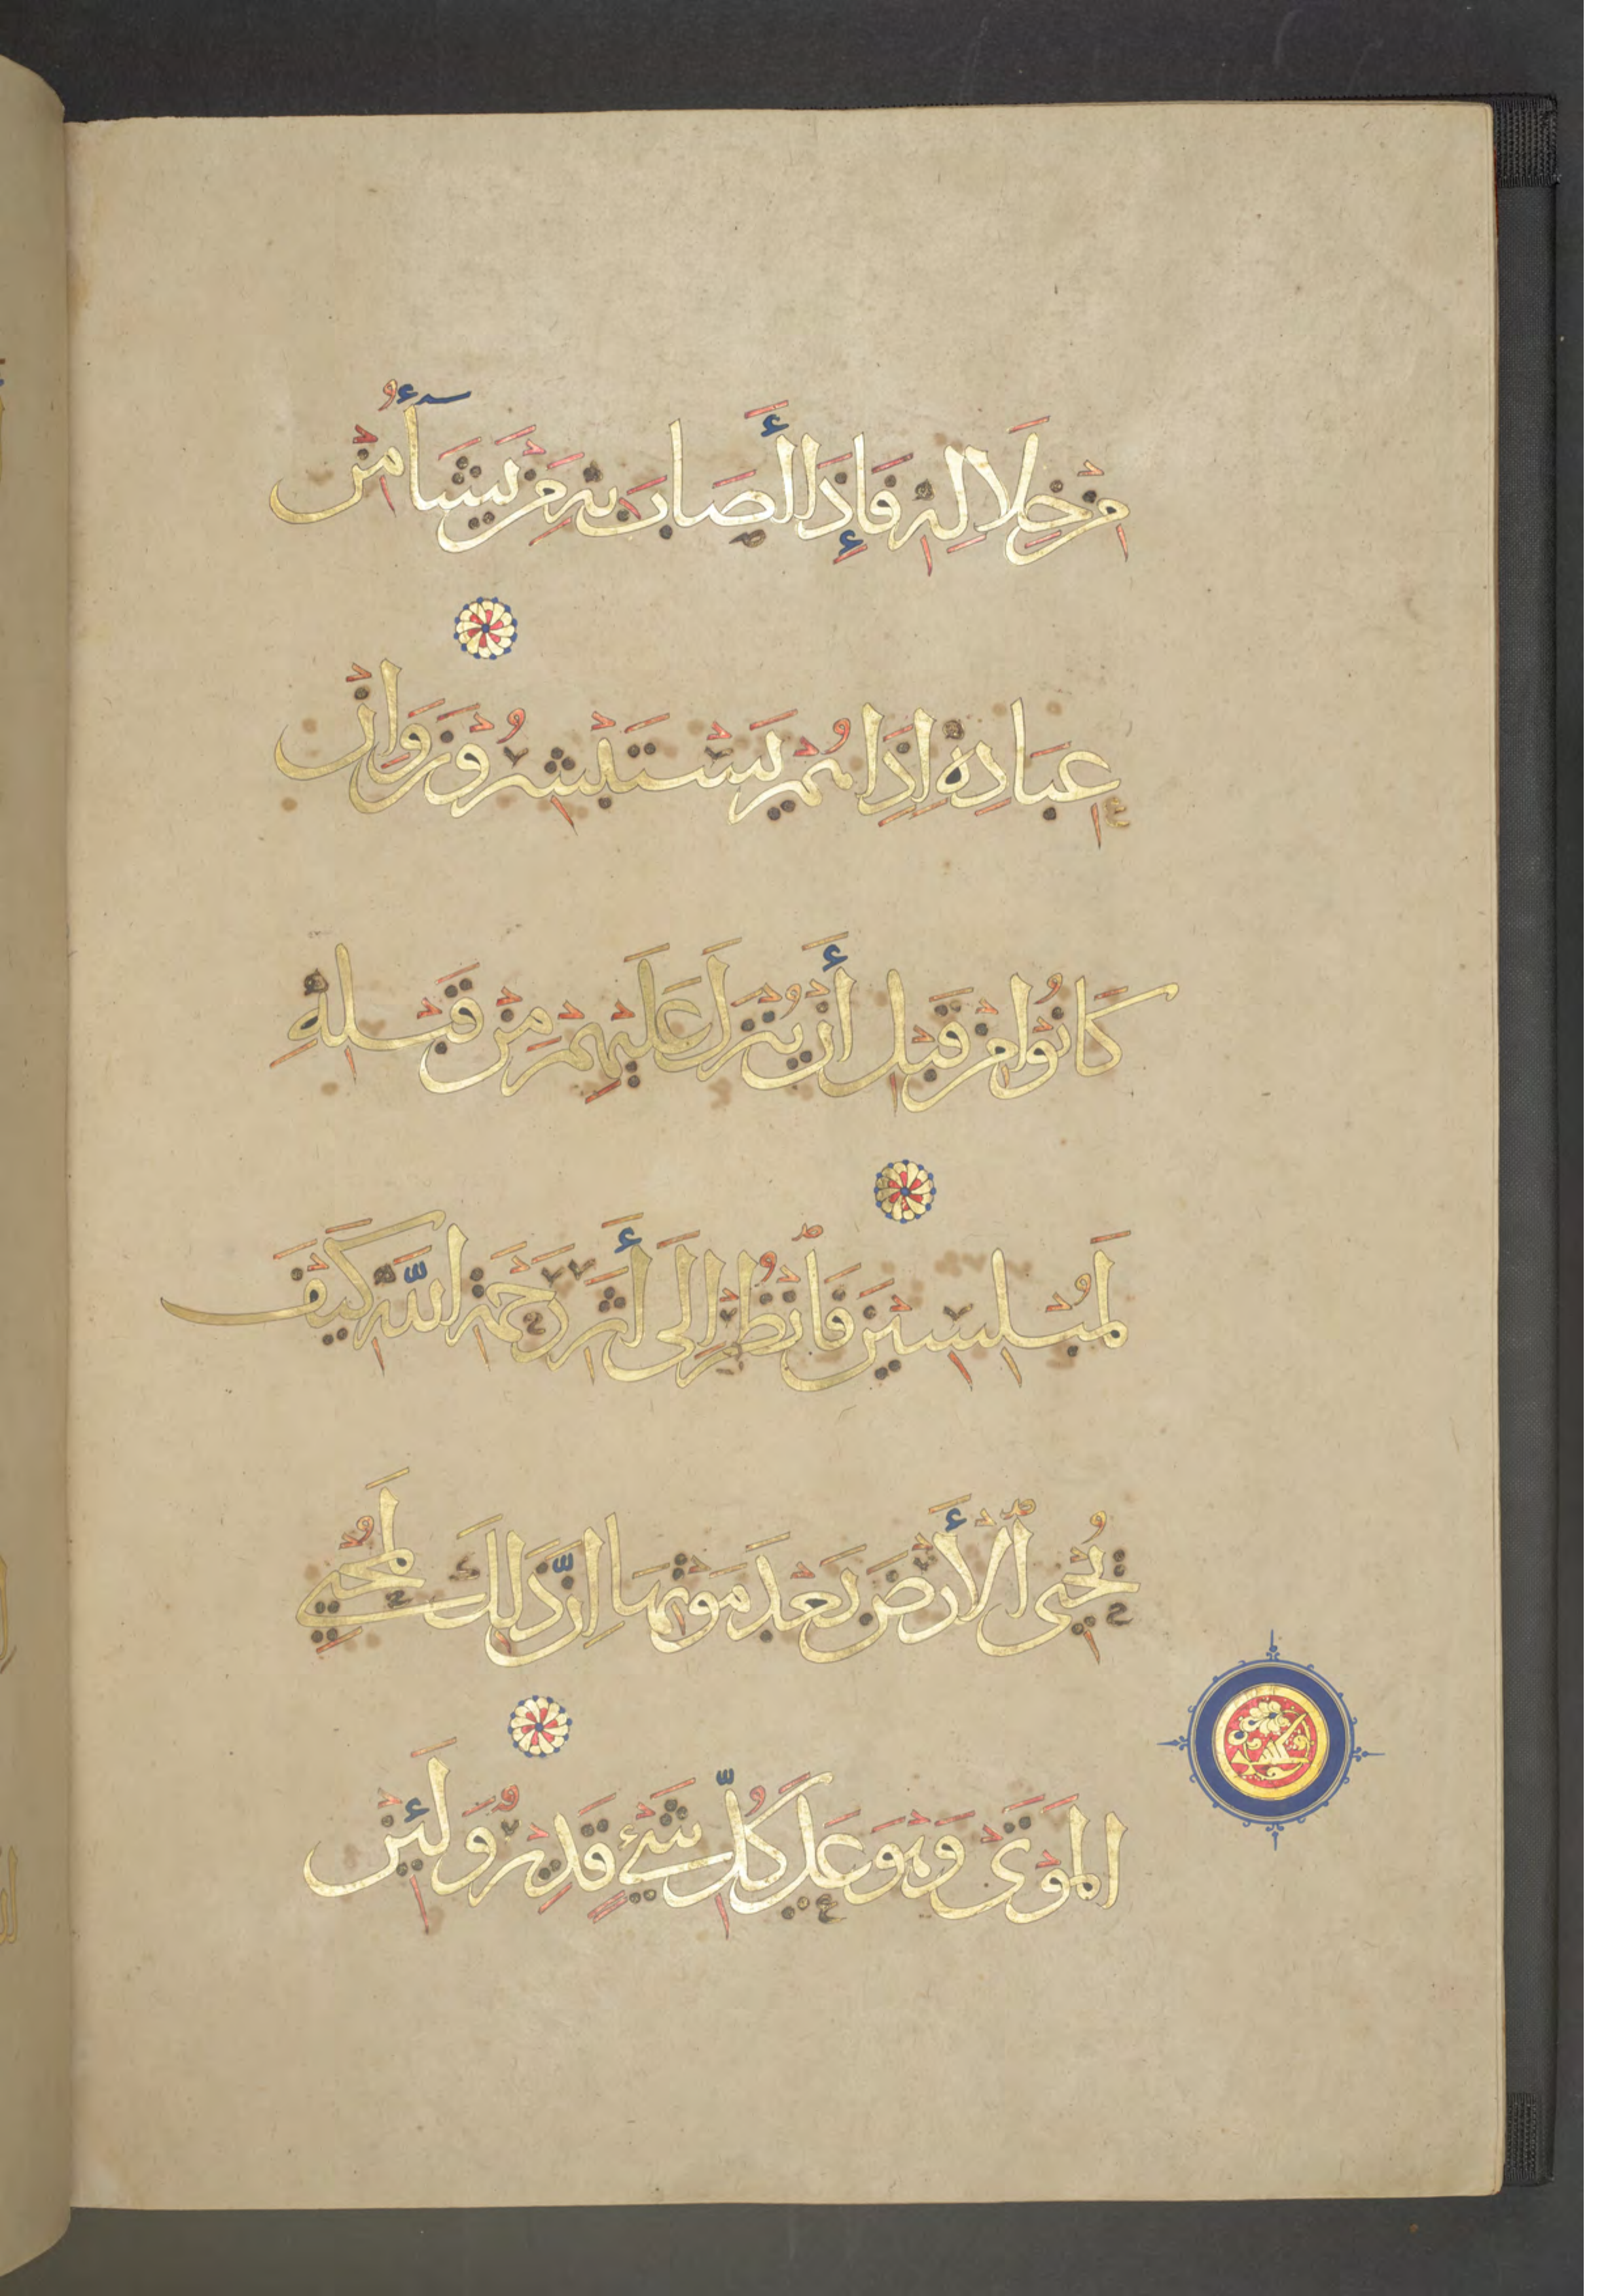 مِنْ خِلَالِهِ فَإِذَا أَصَابَ بِهِ مَنْ يَشَآءُ مِنْ
عِبَادِهِ إِذَا هُمْ يَسْتَبْشِرُونَ وَإِنْ
كَانُوا مِنْ قَبْلِ أَنْ يُنْزَلَ عَلَيْهِمْ مِنْ قَبْلِهِ
لَمُبْلِسِينَ فَٱنْظُرْ إِلَى أَثَرِ رَحْمَةِ اللَّهِ كَيْفَ
يُحْيِي ٱلْأَرْضَ بَعْدَ مَوْتِهَا إِنَّ ذَلِكَ لَمُحْيِي
الْمَوْتَى وَهُوَ عَلَى كُلِّ شَيْءٍ قَدِيرٌ وَلَئِنْ